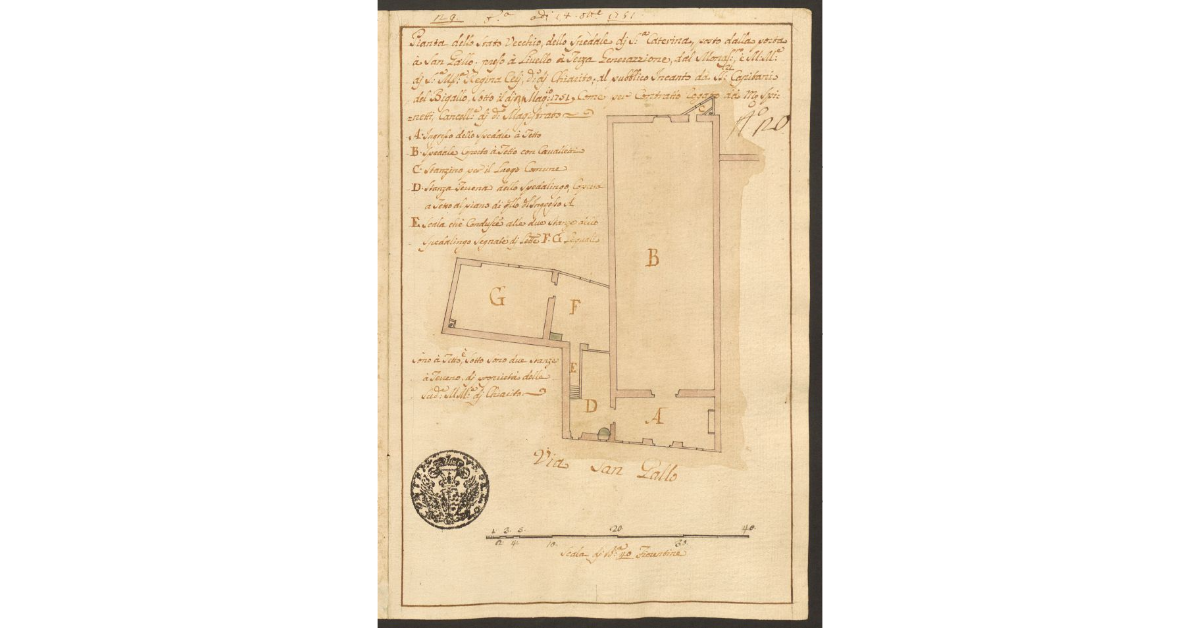 149
adì 14
1751
Pianta dello Stato Vecchio, dello Spedale di S.ta Caterina, posto dalla porta
à San Gallo, messo à Livello à Terza Generazzione, dal Monast.o, e MM.e
di S.to Regina Celi, d.o di Chiarito, al pubblico Incanto da SS.i Capitani
del Bigallo, sotto il dì Mag.o 1751, Come per Contratto Rogato da
netti, Cancell.e di d.o Magistrato
N.o 20
A. Ingresso dello Spedale à Tetto
B. Spedale Coperto à Tetto con Cavalletti
C. Stanzino per il Luogo Comune
D. Stanza Terrena dello Spedalingo, Coperta
à Tetto al piano di d.o Ingresso A
E. Scala che Conduce alle due Stanze dello
Spedalingo Segnate di Lett.e F. G. Le quali
C
B
G
F
Sono à Tetto, e sotto sono due Stanze
à Terreno, di proprietà delle
Sud.e MM.e di Chiarito
E
D
A
Via San Gallo
1. 3. 5. 20. 40.
2. 4. 10. 30.
Scala di B.a 40 Fiorentine